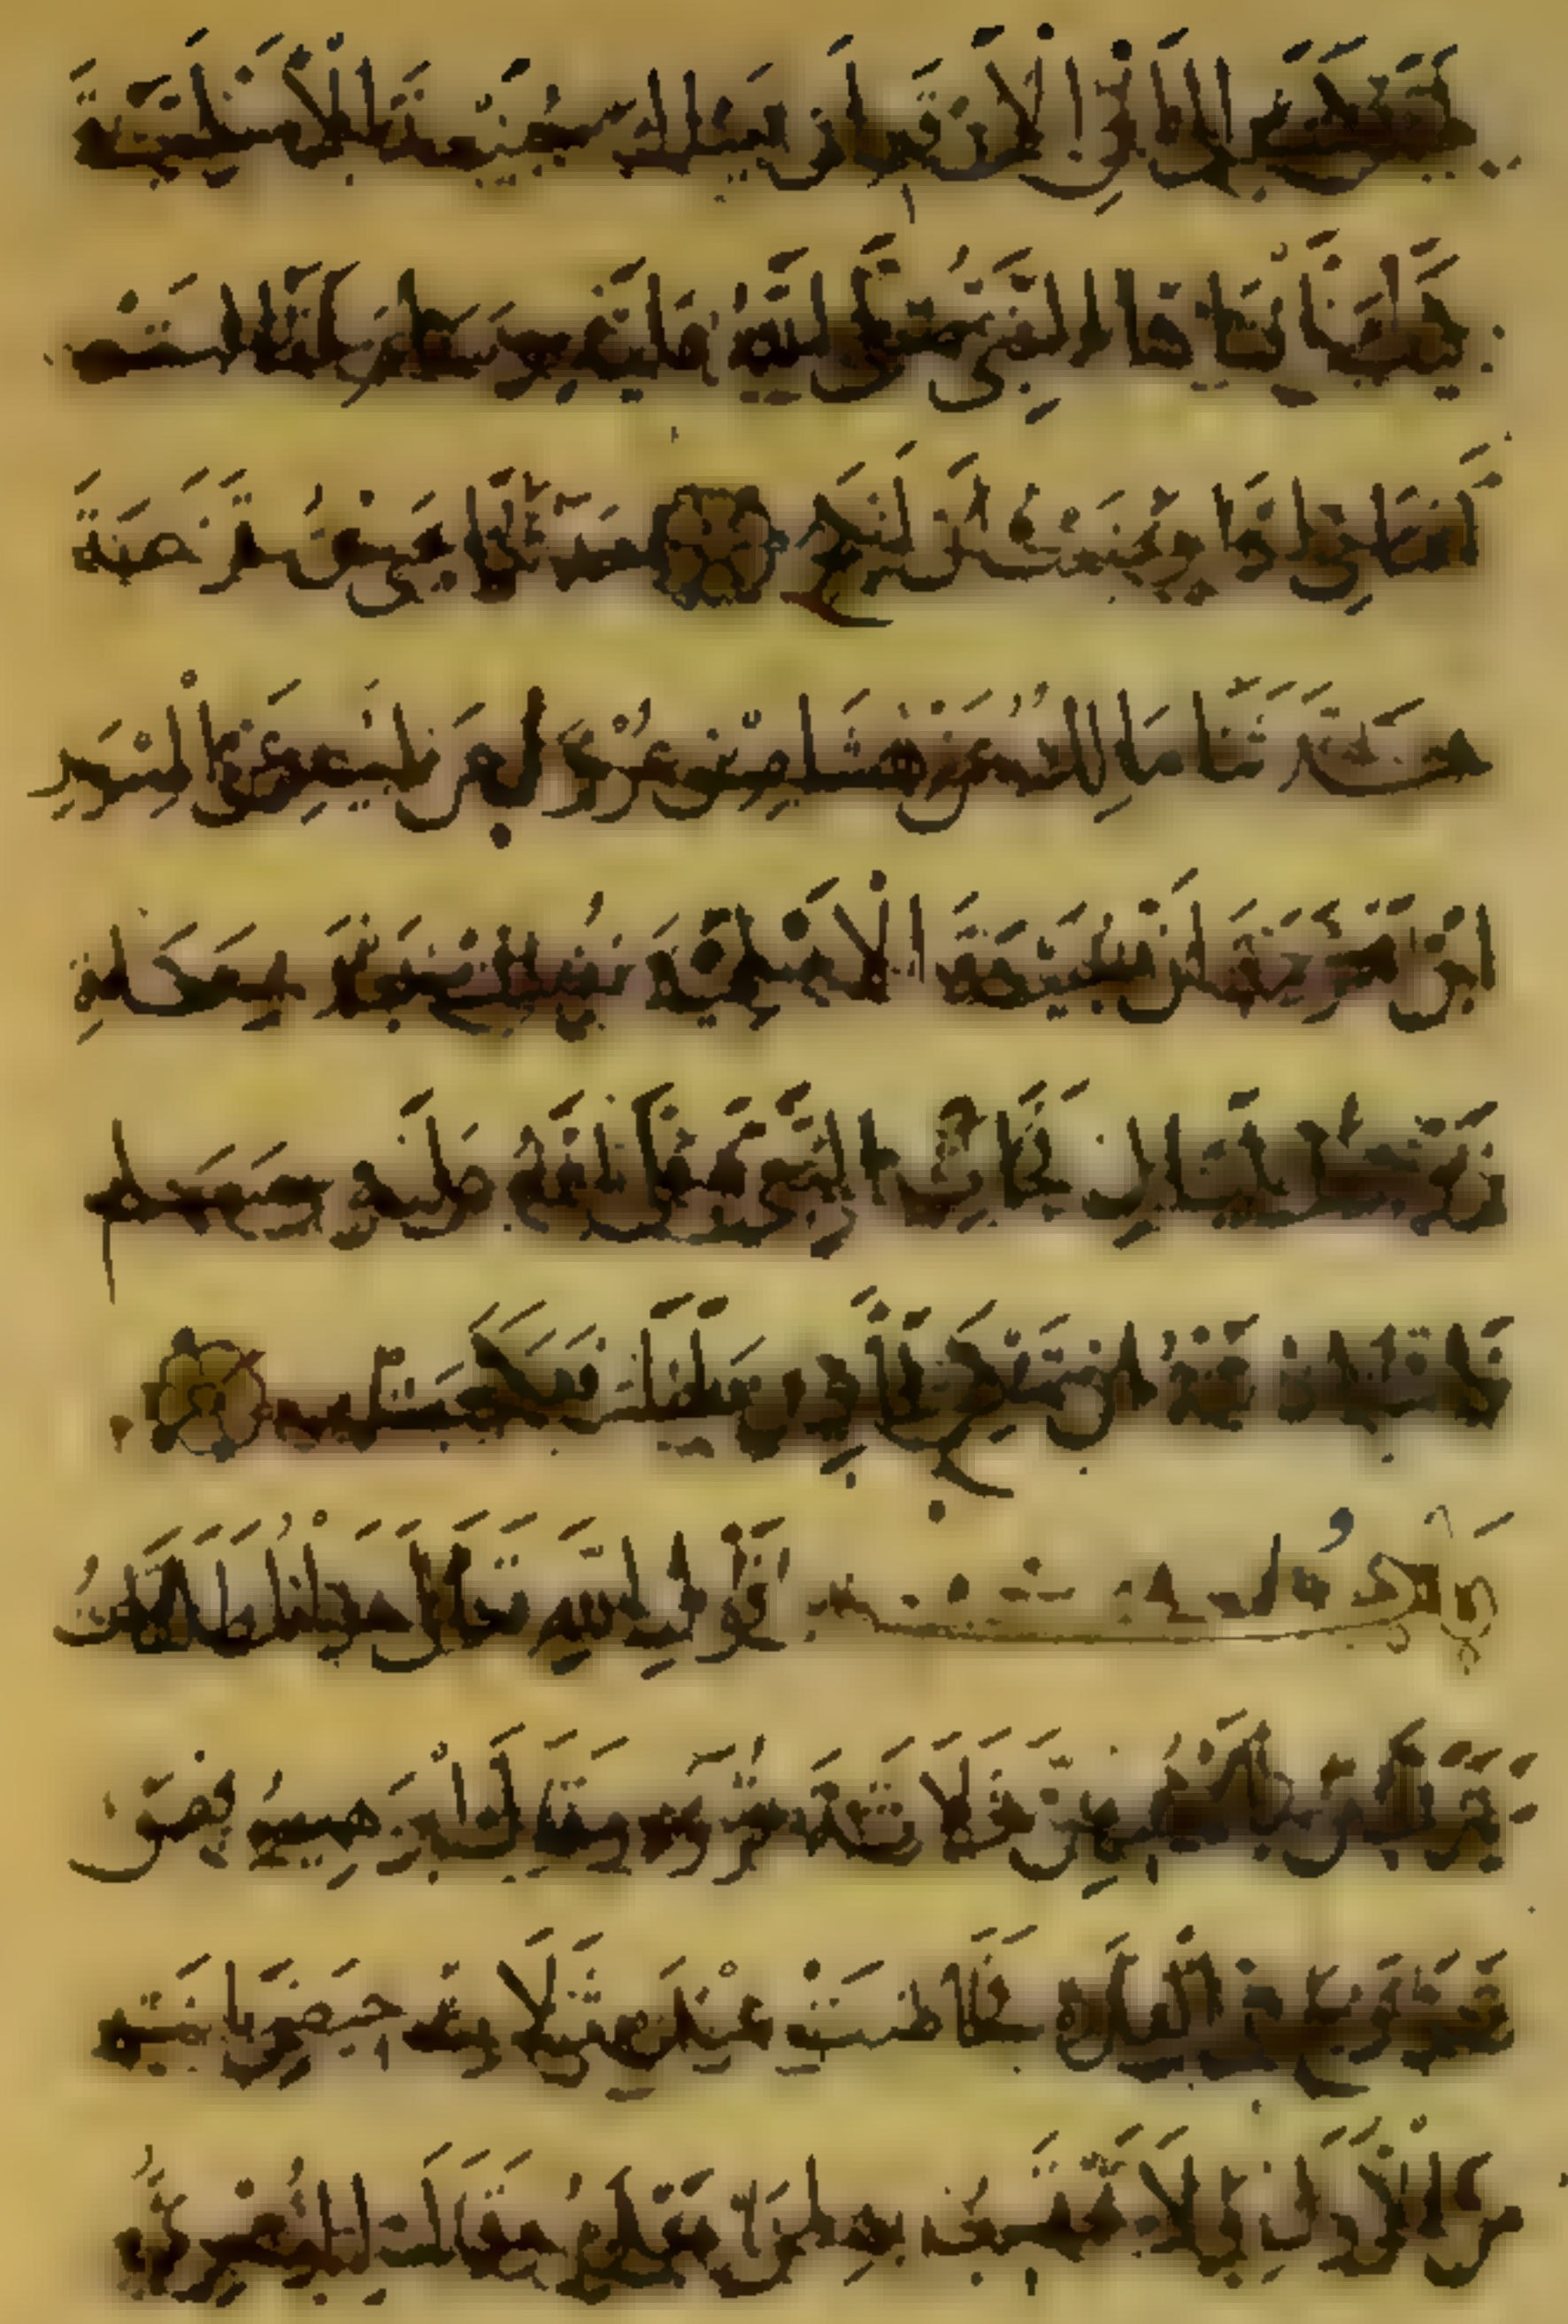 كتب إلى ابن الأرقم أن يسأل سبيعة الأسلمية
كيف أفتاها النبي صلى الله عليه وسلم فقالت
أفتاني إذا وضعت أن أنكح حدثنا يحيى بن قزعة
حدثنا مالك عن هشام بن عروة عن أبيه عن المسور
ابن مخرمة أن سبيعة الأسلمية نفست بعد وفاة
زوجها بليال فجاءت النبي صلى الله عليه وسلم
فاستأذنته أن تنكح فأذن لها فنكحت
باب قول الله تعالى والمطلقات
يتربصن بأنفسهن ثلاثة قروء وقال إبراهيم فيمن
تزوج في العدة فحاضت عنده ثلاث حيض بانت
من الأول ولا تحتسب به لمن بعده وقال الزهري